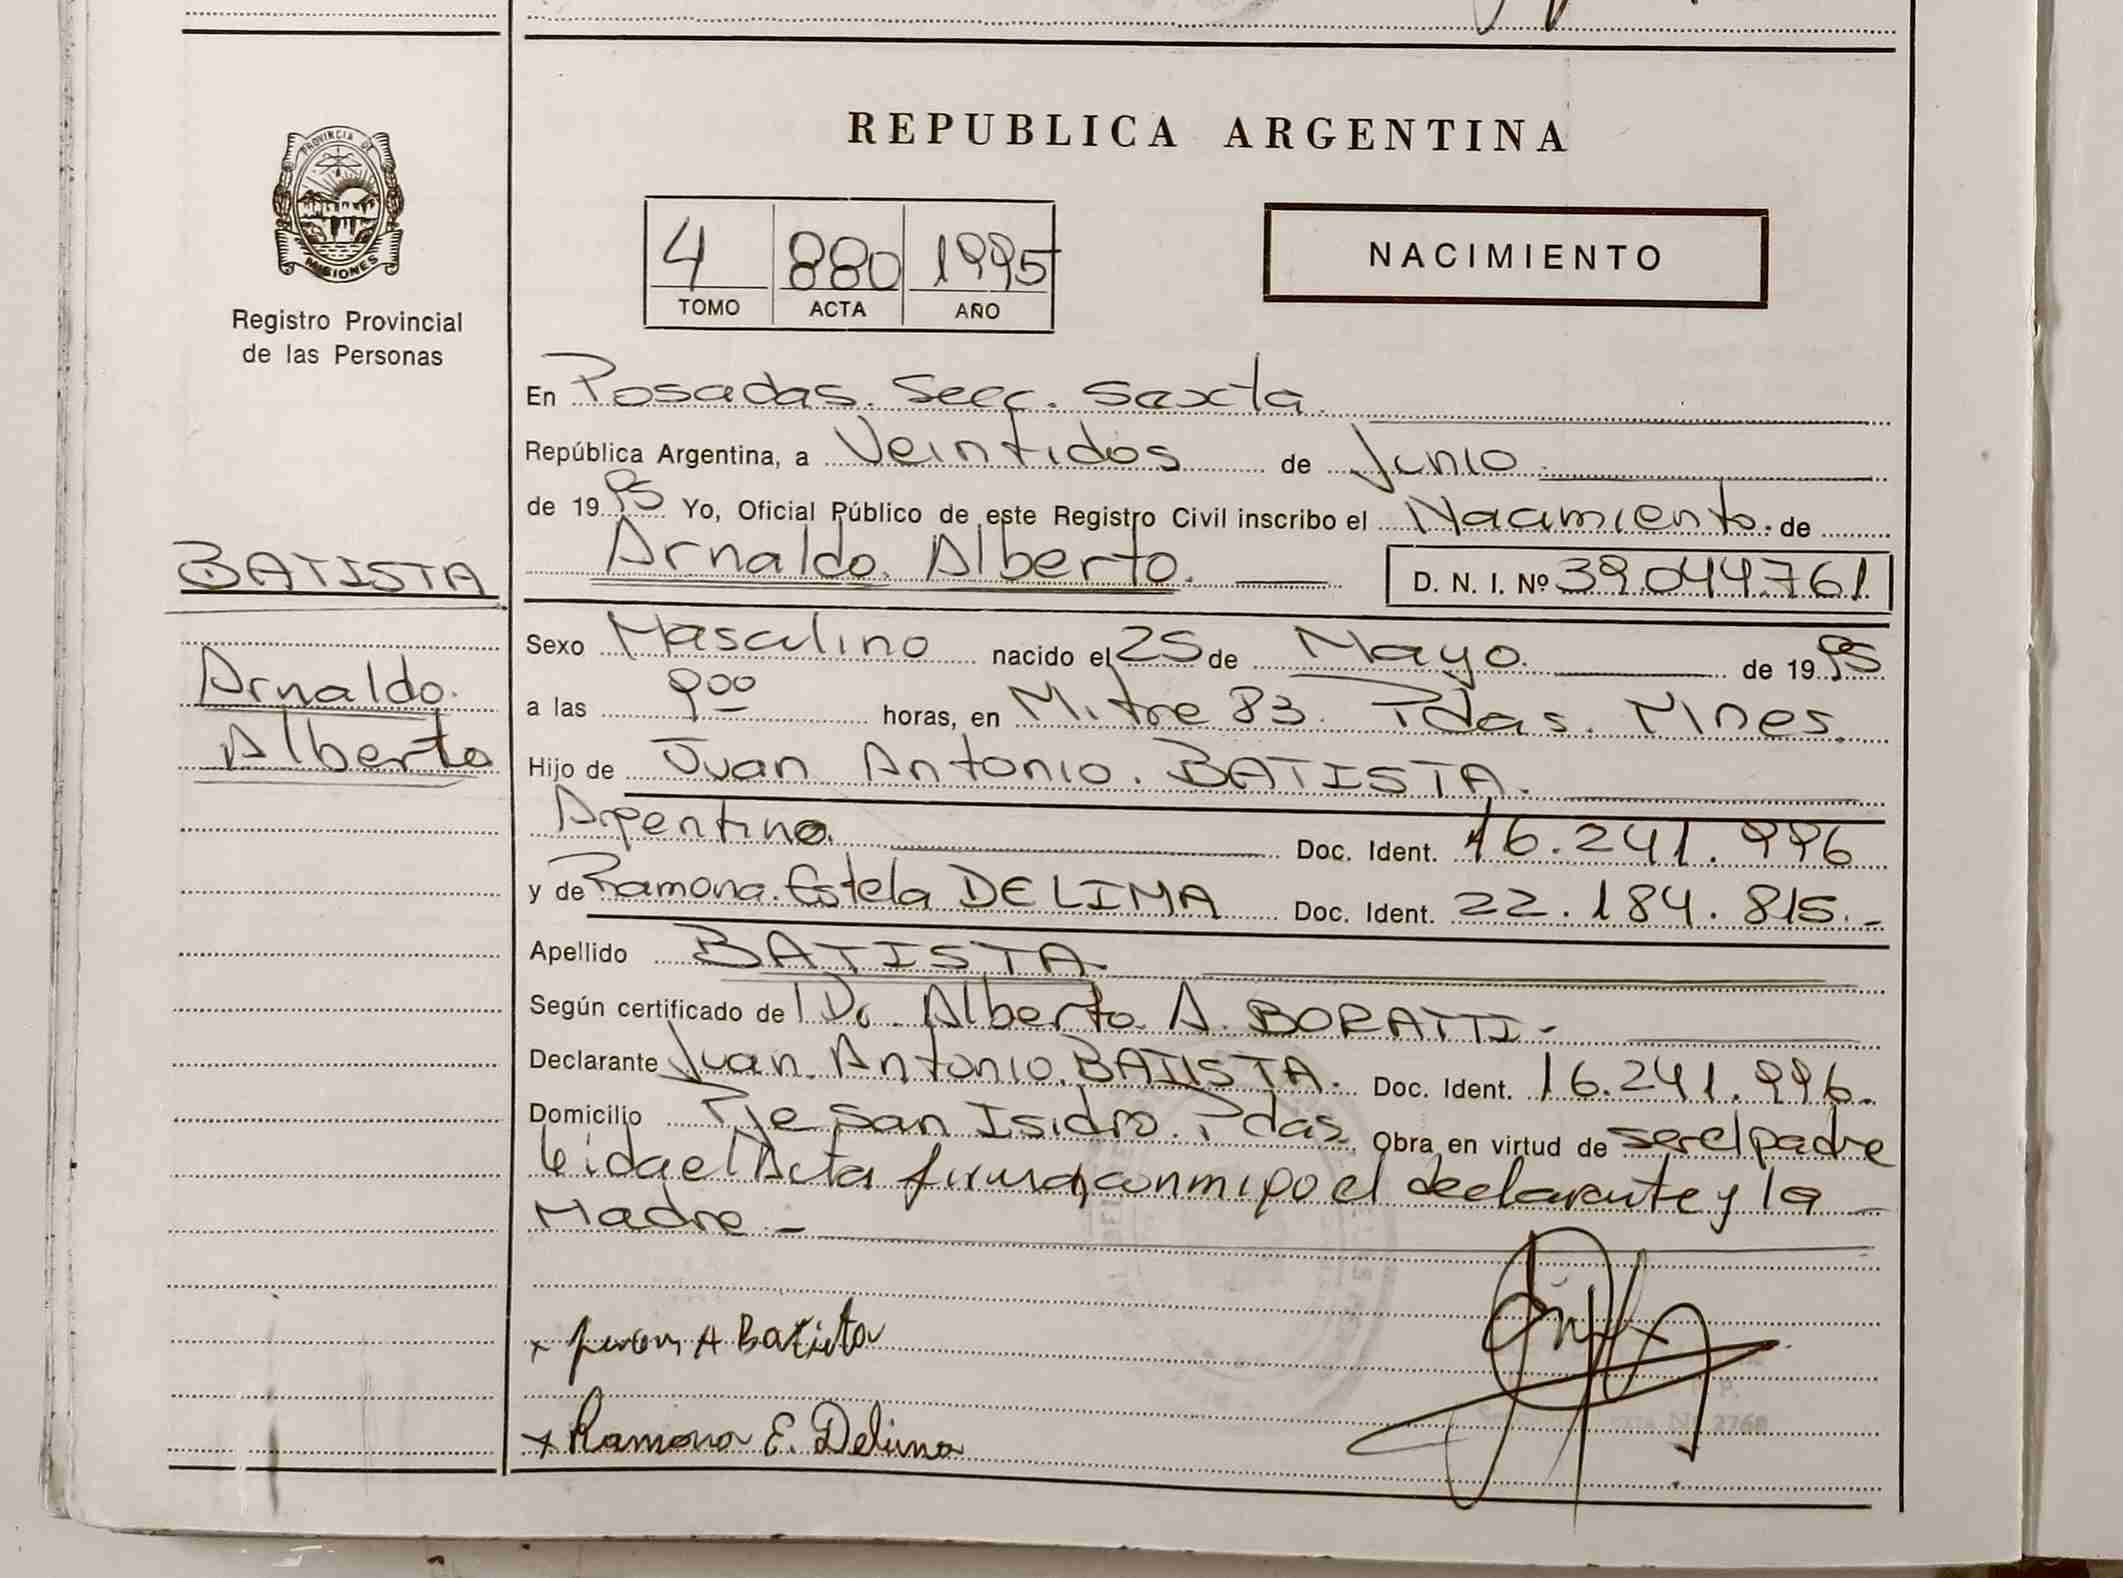 PROVINCIA DE
MISIONES
Registro Provincial
de las Personas
BATISTA
Arnaldo.
Alberto
REPUBLICA ARGENTINA
4 880 1995
TOMO ACTA AÑO
NACIMIENTO
En Posadas. Secc. Sexta.
República Argentina, a Veintidós de Junio.
de 1995 Yo, Oficial Público de este Registro Civil inscribo el Nacimiento. de
Arnaldo. Alberto. D. N. I. Nº 39.044.761
Sexo Masculino nacido el 25 de Mayo. de 1995
a las 9 00 horas, en Mitre 83. Pdas. Mnes.
Hijo de Juan Antonio. BATISTA.
Argentino. Doc. Ident. 16.241.996
y de Ramona. Estela DE LIMA Doc. Ident. 22.184.815.-
Apellido BATISTA.
Según certificado de l Dr. Alberto A. BORATTI-
Declarante Juan. Antonio. BATISTA. Doc. Ident. 16.241.996.
Domicilio Pje San Isidro. Pdas. Obra en virtud de ser el padre
leida el Acta firman conmigo el declarante y la
Madre -
x Juan A Batista
x Ramona E. Delima
2768